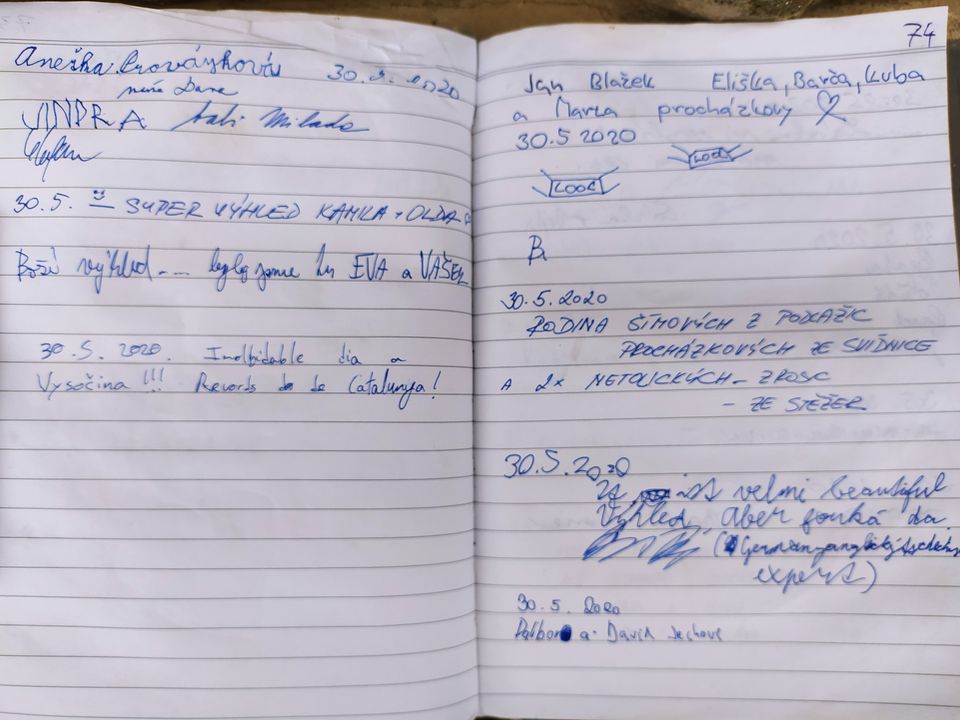 Aneška
30.5.2020
Dana
JINDRA Milada
30.5. SUPER VÝHLED KAMILA + OLDA
Boží výhled.... byly jsme tu EVA a VAŠEK
30.5.2020. Inolbidable dia a
Vysočina!!! Records de Catalunya!
74
Jan Blažek Eliška, Barča, Kuba
a Marta procházkovy
30.5 2020
B.
30.5.2020
RODINA ŠÍMOVÝCH Z
PROCHÁZKOVÝCH ZE SVÍDNICE
A 2x NETOLICKÝCH -
- ZE STĚŽER
30.5.2020
ist velmi beautiful
Výhled, aber fouká da.
expert)
30.5.2020
Dalibor a David